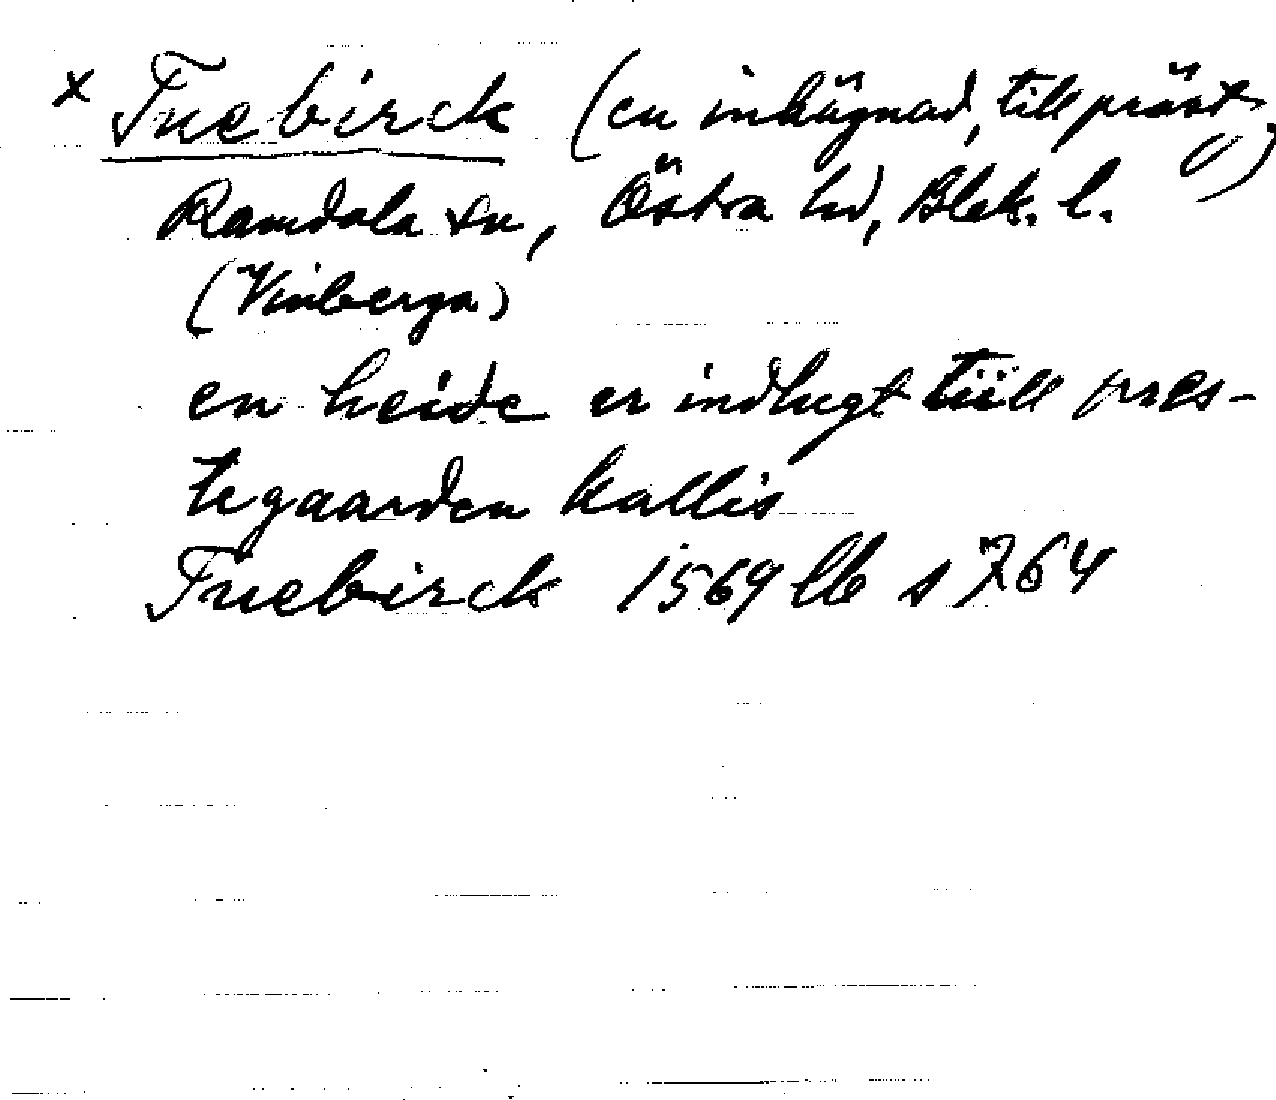 x Tuebirck (en inhägnad, till präst
g)
Ramdala sn, Östra hd, Blek. l.
(Vinberga)
en heide er indlugt tiill pres-
tegaarden kallis
Tuebirck 1569 lb s 764